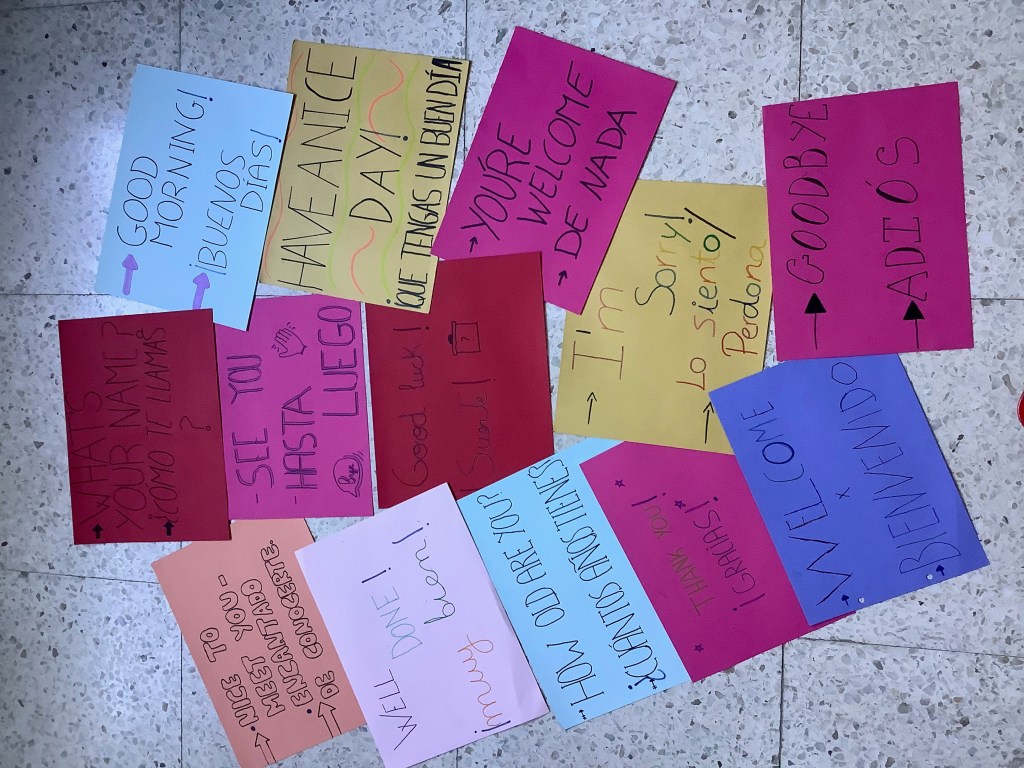 GOOD
MORNING!
¡BUENOS
DÍAS!
HAVE A NICE
DAY!
¡QUE TENGAS UN BUEN DÍA
YOU'RE
WELCOME
DE NADA
I'm
Sorry!
Lo siento/
Perdona
GOODBYE
ADIÓS
WHAT'S
YOUR NAME?
¿CÓMO TE LLAMAS
?
-SEE YOU
-HASTA
LUEGO
Bye
Good luck!
Suerte!
WELCOME
x
BIENVENIDO
NICE TO
MEET YOU-
ENCANTADO
DE CONOCERTE.
WELL DONE!
¡muy bien!
HOW OLD ARE YOU?
¿CUÁNTOS AÑOS TIENES?
THANK YOU!
¡GRACIAS!